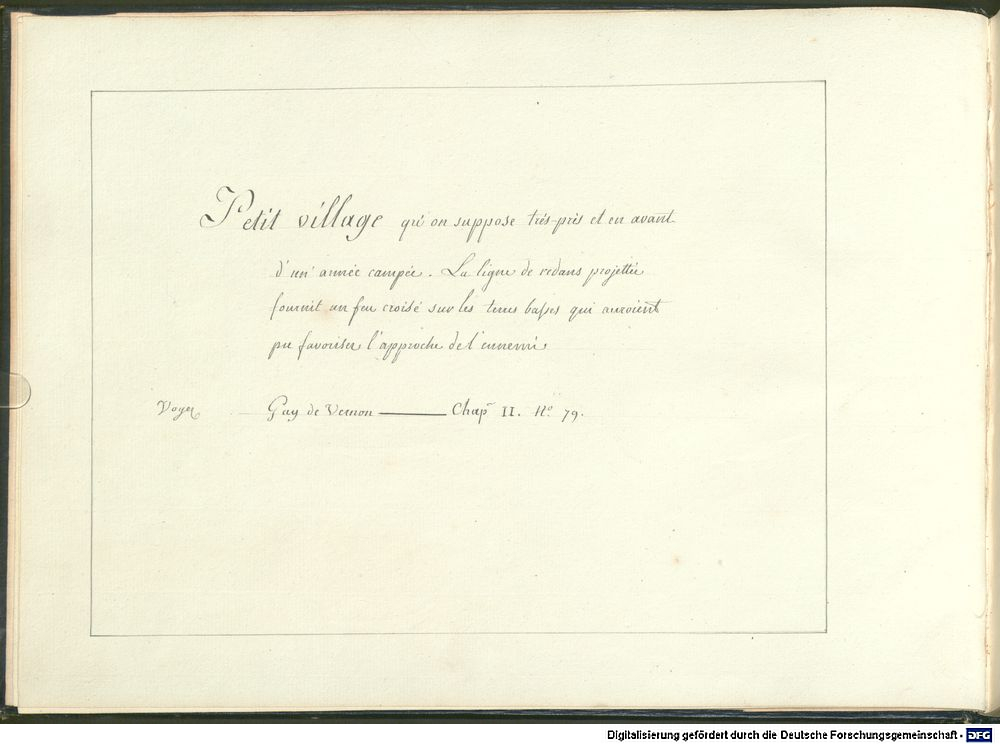 Petit village qu'on suppose très-près et en avant
d'un' armée campée. La ligne de redans projettée
fournit un feu croisé sur les terres basses qui auroient
pu favoriser l'approche de l'ennemi.
Voyez Gay de Vernon ——— Chap. II. No. 79.
Digitalisierung gefördert durch die Deutsche Forschungsgemeinschaft - DFG